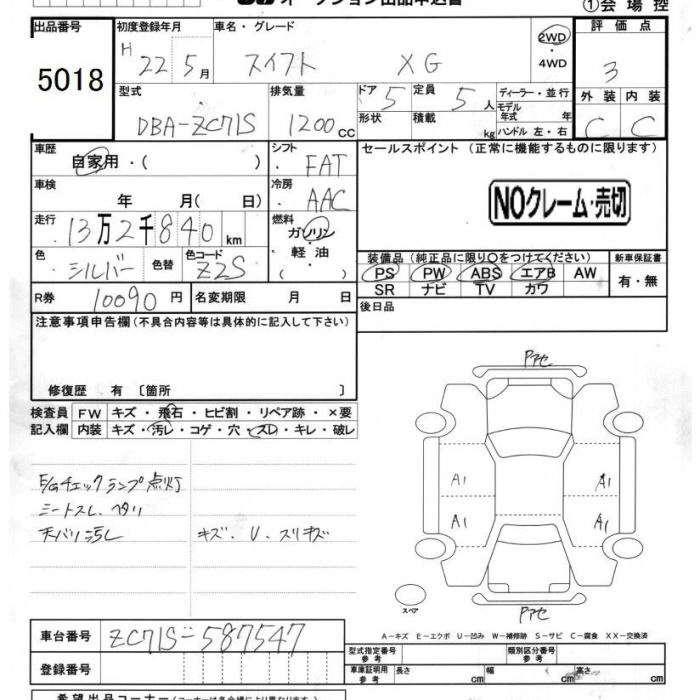 オークション出品申込書
①会場控
出品番号 5018
初度登録年月 H 22年 5月
車名・グレード スイフト XG
2WD
・4WD
評価点 3
型式 DBA-ZC71S
排気量 1200cc
ドア 5 形状
定員 5人 積載 kg
ディーラー・並行
モデル年式 年
ハンドル 左・右
外装 C
内装 C
車歴 自家用・( )
シフト FAT
セールスポイント (正常に機能するものに限ります)
車検 年 月( 日)
冷房 AAC
NOクレーム・売切
走行 13万2千840km
燃料 ガソリン・軽油 ・( )
色 シルバー 色替
色コード Z2S
装備品 (純正品に限り○をつけてください)
新車保証書
PS PW ABS エアB AW
SR ナビ TV カワ
有・無
R券 10090円
名変期限 月 日
後日品
注意事項申告欄 (不具合内容等は具体的に記入して下さい)
修復歴 有 〔箇所 〕
検査員記入欄
FW キズ・飛石・ヒビ割・リペア跡・×要
内装 キズ・汚レ・コゲ・穴・スレ・キレ・破レ
E/Gチェックランプ点灯
シートスレ、ヘタリ
天バリ汚レ キズ、U、スリキズ
Pアセ
A1 A1
A1 A1
Pアセ
スペア
A―キズ E―エクボ U―凹み W―補修跡 S―サビ C―腐食 XX―交換済
車台番号 ZC71S-587547
登録番号
型式指定番号 参考
類別区分番号 参考
車庫証明用 参考 長さ cm 幅 cm 高さ cm
希望出品コーナー